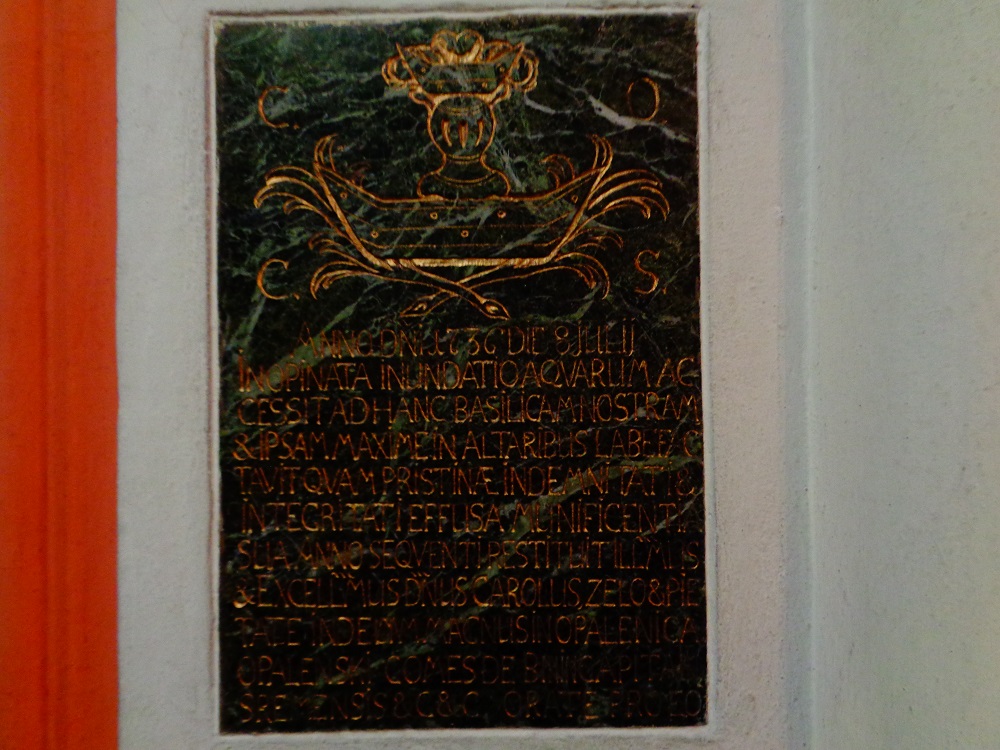 C. O.
C. S.
ANNO DNI 1736 DIE 8 JULIJ
INOPINATA INUNDATIO AQVARUM AC
CESSIT AD HANC BASILICAM NOSTRAM
& IPSAM MAXIME IN ALTARIBUS LABEFAC
TAVIT QVAM PRISTINÆ INDEMNITATI &
INTEGRITATI EFFUSA MUNIFICENTIA
SUA ANNO SEQVENTI RESTITUIT ILLMUS
& EXCELLMUS DNUS CAROLUS, ZELO & PIE
TATE IN DEUM MAGNUS IN OPALENICA
OPALENSKI COMES DE BNIN CAPITAN
SREMENSIS & C & C ORATE PRO EO